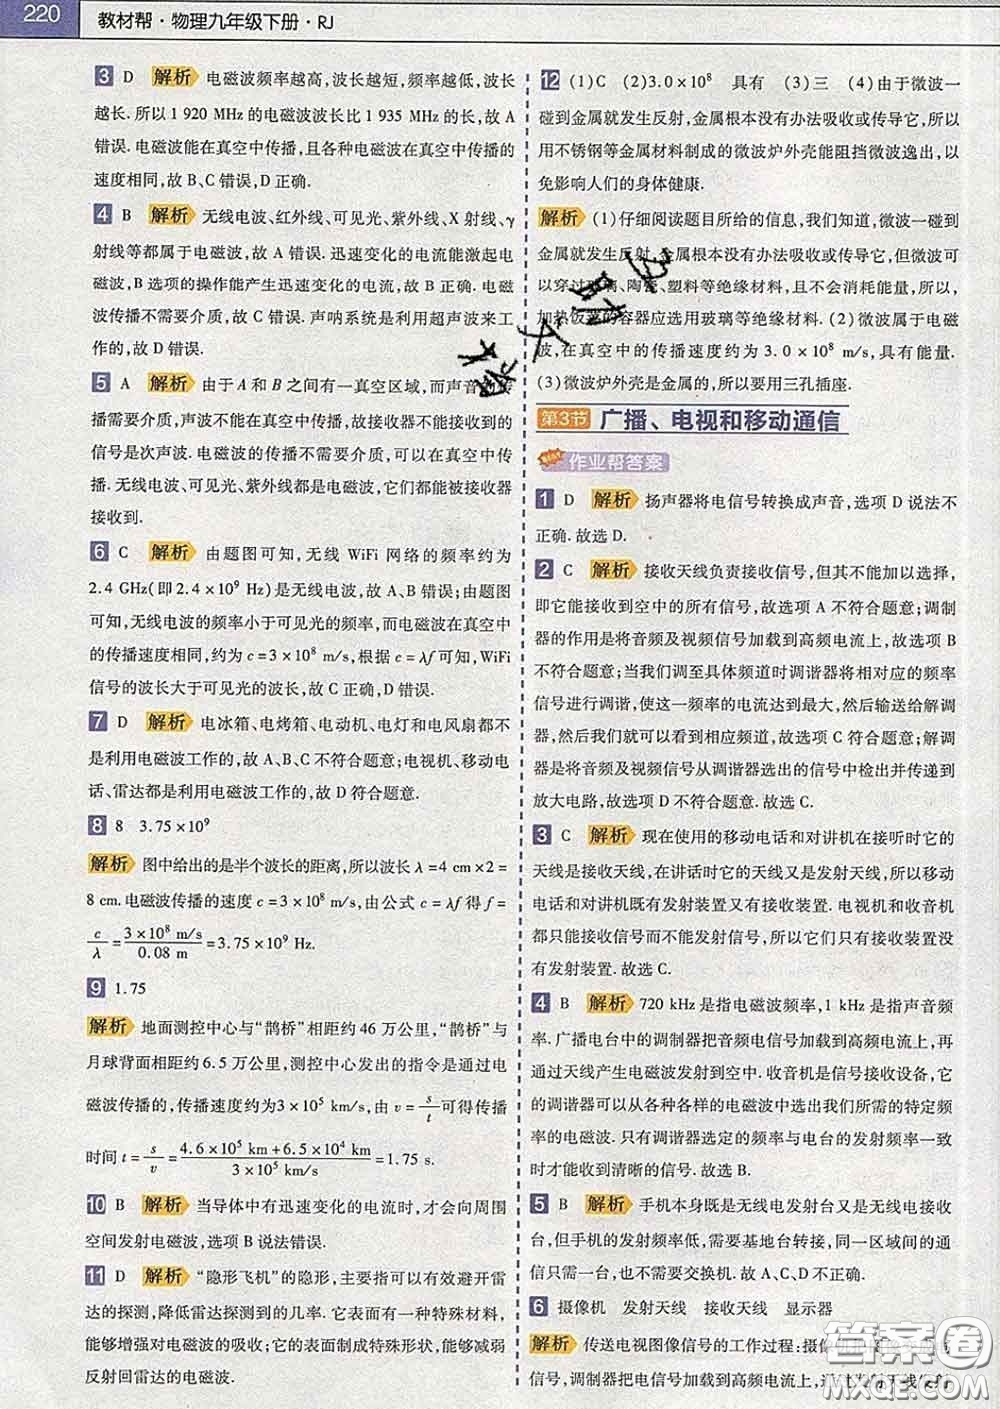 220 教材帮·物理九年级下册·RJ
3 D 解析 电磁波频率越高,波长越短,频率越低,波长
越长. 所以 1 920 MHz 的电磁波波长比 1 935 MHz 的长,故 A
错误. 电磁波能在真空中传播,且各种电磁波在真空中传播的
速度相同,故 B、C 错误,D 正确.
4 B 解析 无线电波、红外线、可见光、紫外线、X 射线、γ
射线等都属于电磁波,故 A 错误. 迅速变化的电流能激起电
磁波,B 选项的操作能产生迅速变化的电流,故 B 正确. 电磁
波传播不需要介质,故 C 错误. 声呐系统是利用超声波来工
作的,故 D 错误.
5 A 解析 由于 A 和 B 之间有一真空区域,而声音的传
播需要介质,声波不能在真空中传播,故接收器不能接收到的
信号是次声波. 电磁波的传播不需要介质,可以在真空中传
播. 无线电波、可见光、紫外线都是电磁波,它们能够被接收器
接收到.
6 C 解析 由题图可知,无线 WiFi 网络的频率约为
2.4 GHz(即 2.4×10⁹ Hz)是无线电波,故 A、B 错误;由题图
可知,无线电波的频率小于可见光的频率,而电磁波在真空中
的传播速度相同,约为 c=3×10⁸ m/s,根据 c=λf 可知,WiFi
信号的波长大于可见光的波长,故 C 正确,D 错误.
7 D 解析 电冰箱、电烤箱、电动机、电灯和电风扇都不
是利用电磁波工作的,故 A、B、C 不符合题意;电视机、移动电
话、雷达都是利用电磁波工作的,故 D 符合题意.
8 8 3.75×10⁹
解析 图中给出的是半个波长的距离,所以波长 λ=4 cm×2=
8 cm. 电磁波传播的速度 c=3×10⁸ m/s,由公式 c=λf 得 f=
c/λ=3×10⁸ m/s/0.08 m=3.75×10⁹ Hz.
9 1.75
解析 地面测控中心与“鹊桥”相距约 46 万公里,“鹊桥”与
月球背面相距约 6.5 万公里,测控中心发出的指令是通过电
磁波传播的,传播速度约为3×10⁵ km/s,由 v=s/t可得传播
时间 t=s/v=4.6×10⁵ km+6.5×10⁴ km/3×10⁵ km/s=1.75 s.
10 B 解析 当导体中有迅速变化的电流时,才会向周围
空间发射电磁波,选项 B 说法错误.
11 D 解析 “隐形飞机”的隐形,主要指可以有效避开雷
达的探测,降低雷达探测到的几率. 它表面有一种特殊材料,
能够增强对电磁波的吸收;它的表面制成特殊形状,能够减弱
反射回雷达的电磁波.
12 (1)C (2)3.0×10⁸ 具有 (3)三 (4)由于微波一
碰到金属就发生反射,金属根本没有办法吸收或传导它,所以
用不锈钢等金属材料制成的微波炉外壳能阻挡微波逸出,以
免影响人们的身体健康.
解析 (1)仔细阅读题目所给的信息,我们知道,微波一碰到
金属就发生反射,金属根本没有办法吸收或传导它,微波可
以穿过玻璃、陶瓷、塑料等绝缘材料,且不会消耗能量,所以,
加热饭菜的容器应选用玻璃等绝缘材料. (2)微波属于电磁
波,在真空中的传播速度约为 3.0×10⁸ m/s,具有能量.
(3)微波炉外壳是金属的,所以要用三孔插座.
第3节 广播、电视和移动通信
作业帮答案
1 D 解析 扬声器将电信号转换成声音,选项 D 说法不
正确. 故选 D.
2 C 解析 接收天线负责接收信号,但其不能加以选择,
即它能接收到空中的所有信号,故选项 A 不符合题意;调制
器的作用是将音频及视频信号加载到高频电流上,故选项 B
不符合题意;当我们调至具体频道时调谐器将相对应的频率
信号进行调谐,使这一频率的电流达到最大,然后输送给解调
器,然后我们就可以看到相应频道,故选项 C 符合题意;解调
器是将音频及视频信号从调谐器选出的信号中检出并传递到
放大电路,故选项 D 不符合题意. 故选 C.
3 C 解析 现在使用的移动电话和对讲机在接听时它的
天线是接收天线,在讲话时它的天线又是发射天线,所以移动
电话和对讲机既有发射装置又有接收装置. 电视机和收音机
都只能接收信号而不能发射信号,所以它们只有接收装置没
有发射装置. 故选 C.
4 B 解析 720 kHz 是指电磁波频率,1 kHz 是指声音频
率. 广播电台中的调制器把音频电信号加载到高频电流上,再
通过天线产生电磁波发射到空中. 收音机是信号接收设备,它
的调谐器可以从各种各样的电磁波中选出我们所需的特定频
率的电磁波. 只有调谐器选定的频率与电台的发射频率一致
时才能收到清晰的信号. 故选 B.
5 B 解析 手机本身既是无线电发射台又是无线电接收
台,但手机的发射频率低,需要基地台转接,同一区域间的通
信只需一台,也不需要交换机. 故 A、C、D 不正确.
6 摄像机 发射天线 接收天线 显示器
解析 传送电视图像信号的工作过程:摄像机
信号,调制器把电信号加载到高频电流上,通过发射天线
答案圈